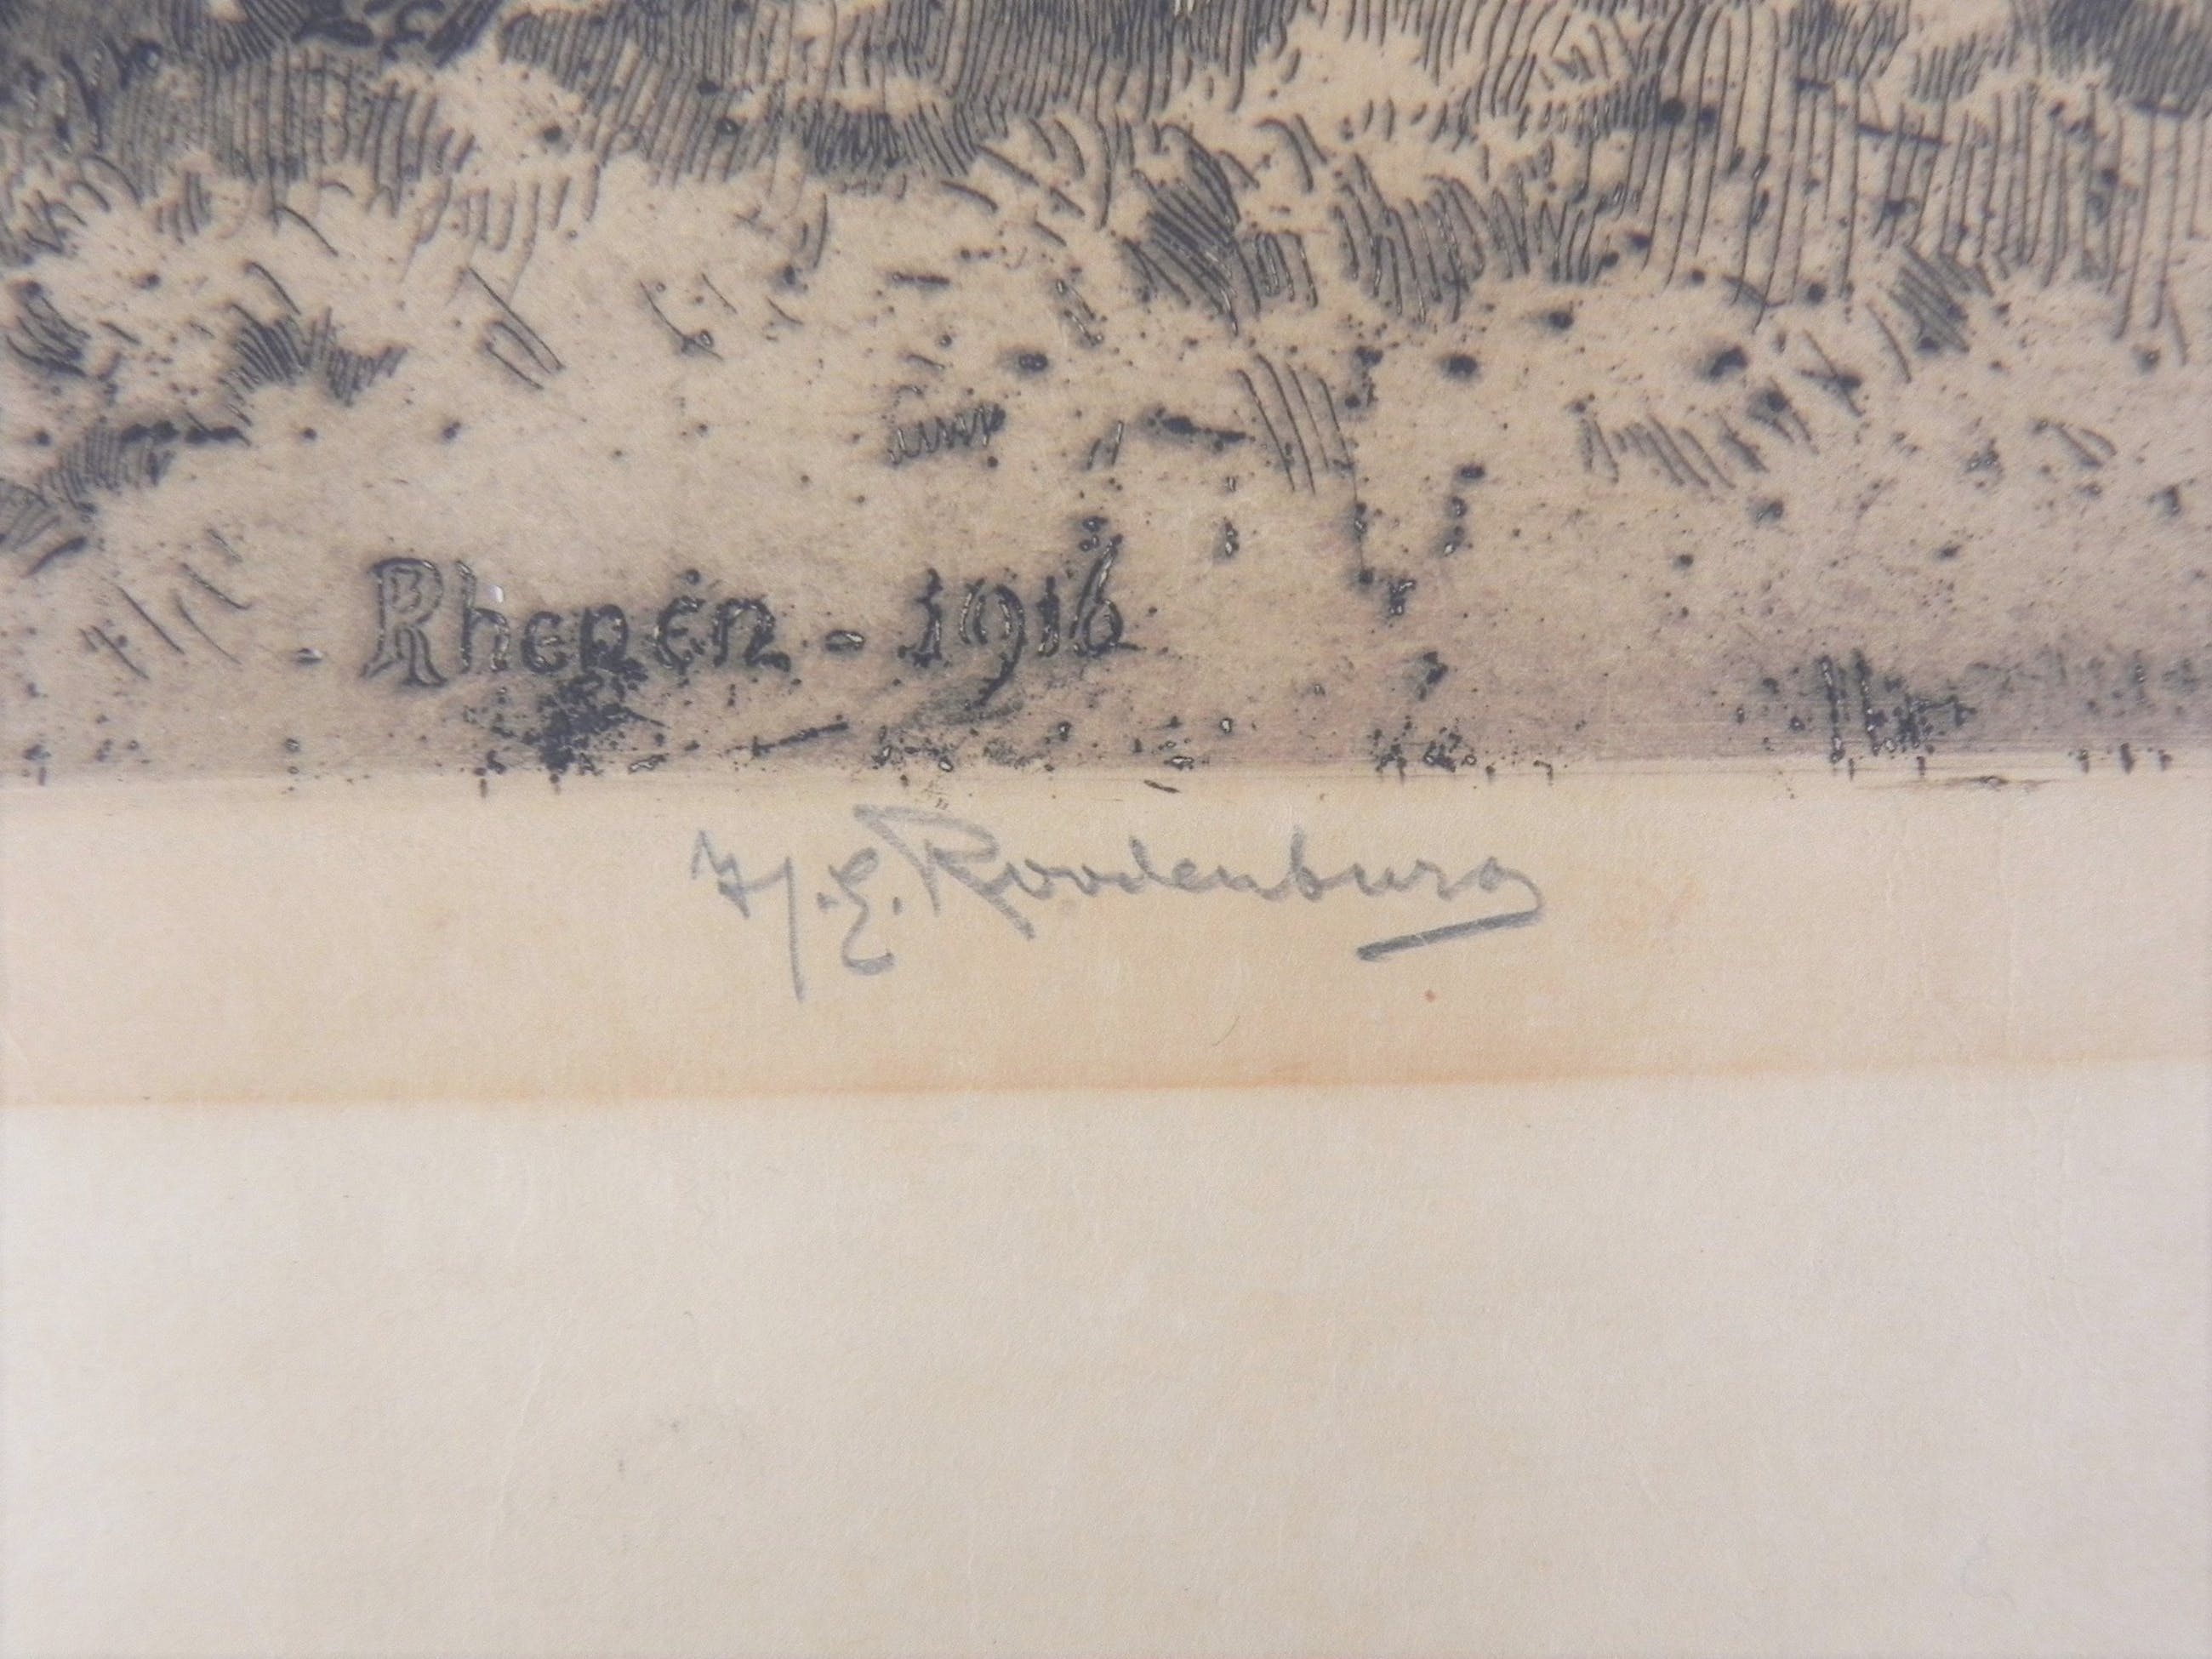 Rhenen - 1916
H.E. Roodenburg